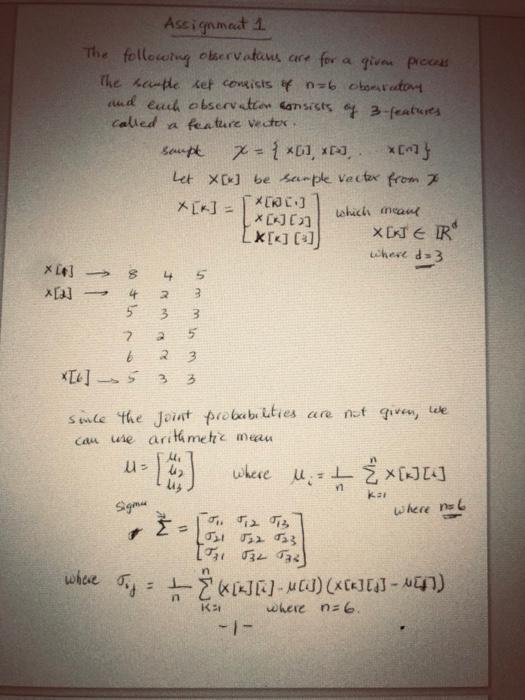 Assignment 1
The following observations are for a given process
The sample set consists of n=6 observatory
and each observation consists of 3-features
called a feature vector.
sample 𝒳 = { x[1], x[2], . . x[n] }
Let x[k] be sample vector from 𝒳
x[k] = [ x[k][1] x[k][2] x[k][3] ] which means x[k] ∈ ℝᵈ where d=3
x[1] → 8 4 5
x[2] → 4 2 3
5 3 3
7 2 5
6 2 3
x[6] → 5 3 3
since the joint probabilities are not given, we
can use arithmetic mean
μ = [ μ₁ μ₂ μ₃ ] where μᵢ = 1/n Σ_{k=1}^{n} x[k][i]
where n=6
sigma
Σ = [ σ₁₁ σ₁₂ σ₁₃ σ₂₁ σ₂₂ σ₂₃ σ₃₁ σ₃₂ σ₃₃ ]
where σᵢⱼ = 1/n Σ_{k=1}^{n} (x[k][i] - μ[i]) (x[k][j] - μ[j])
where n=6.
-1-